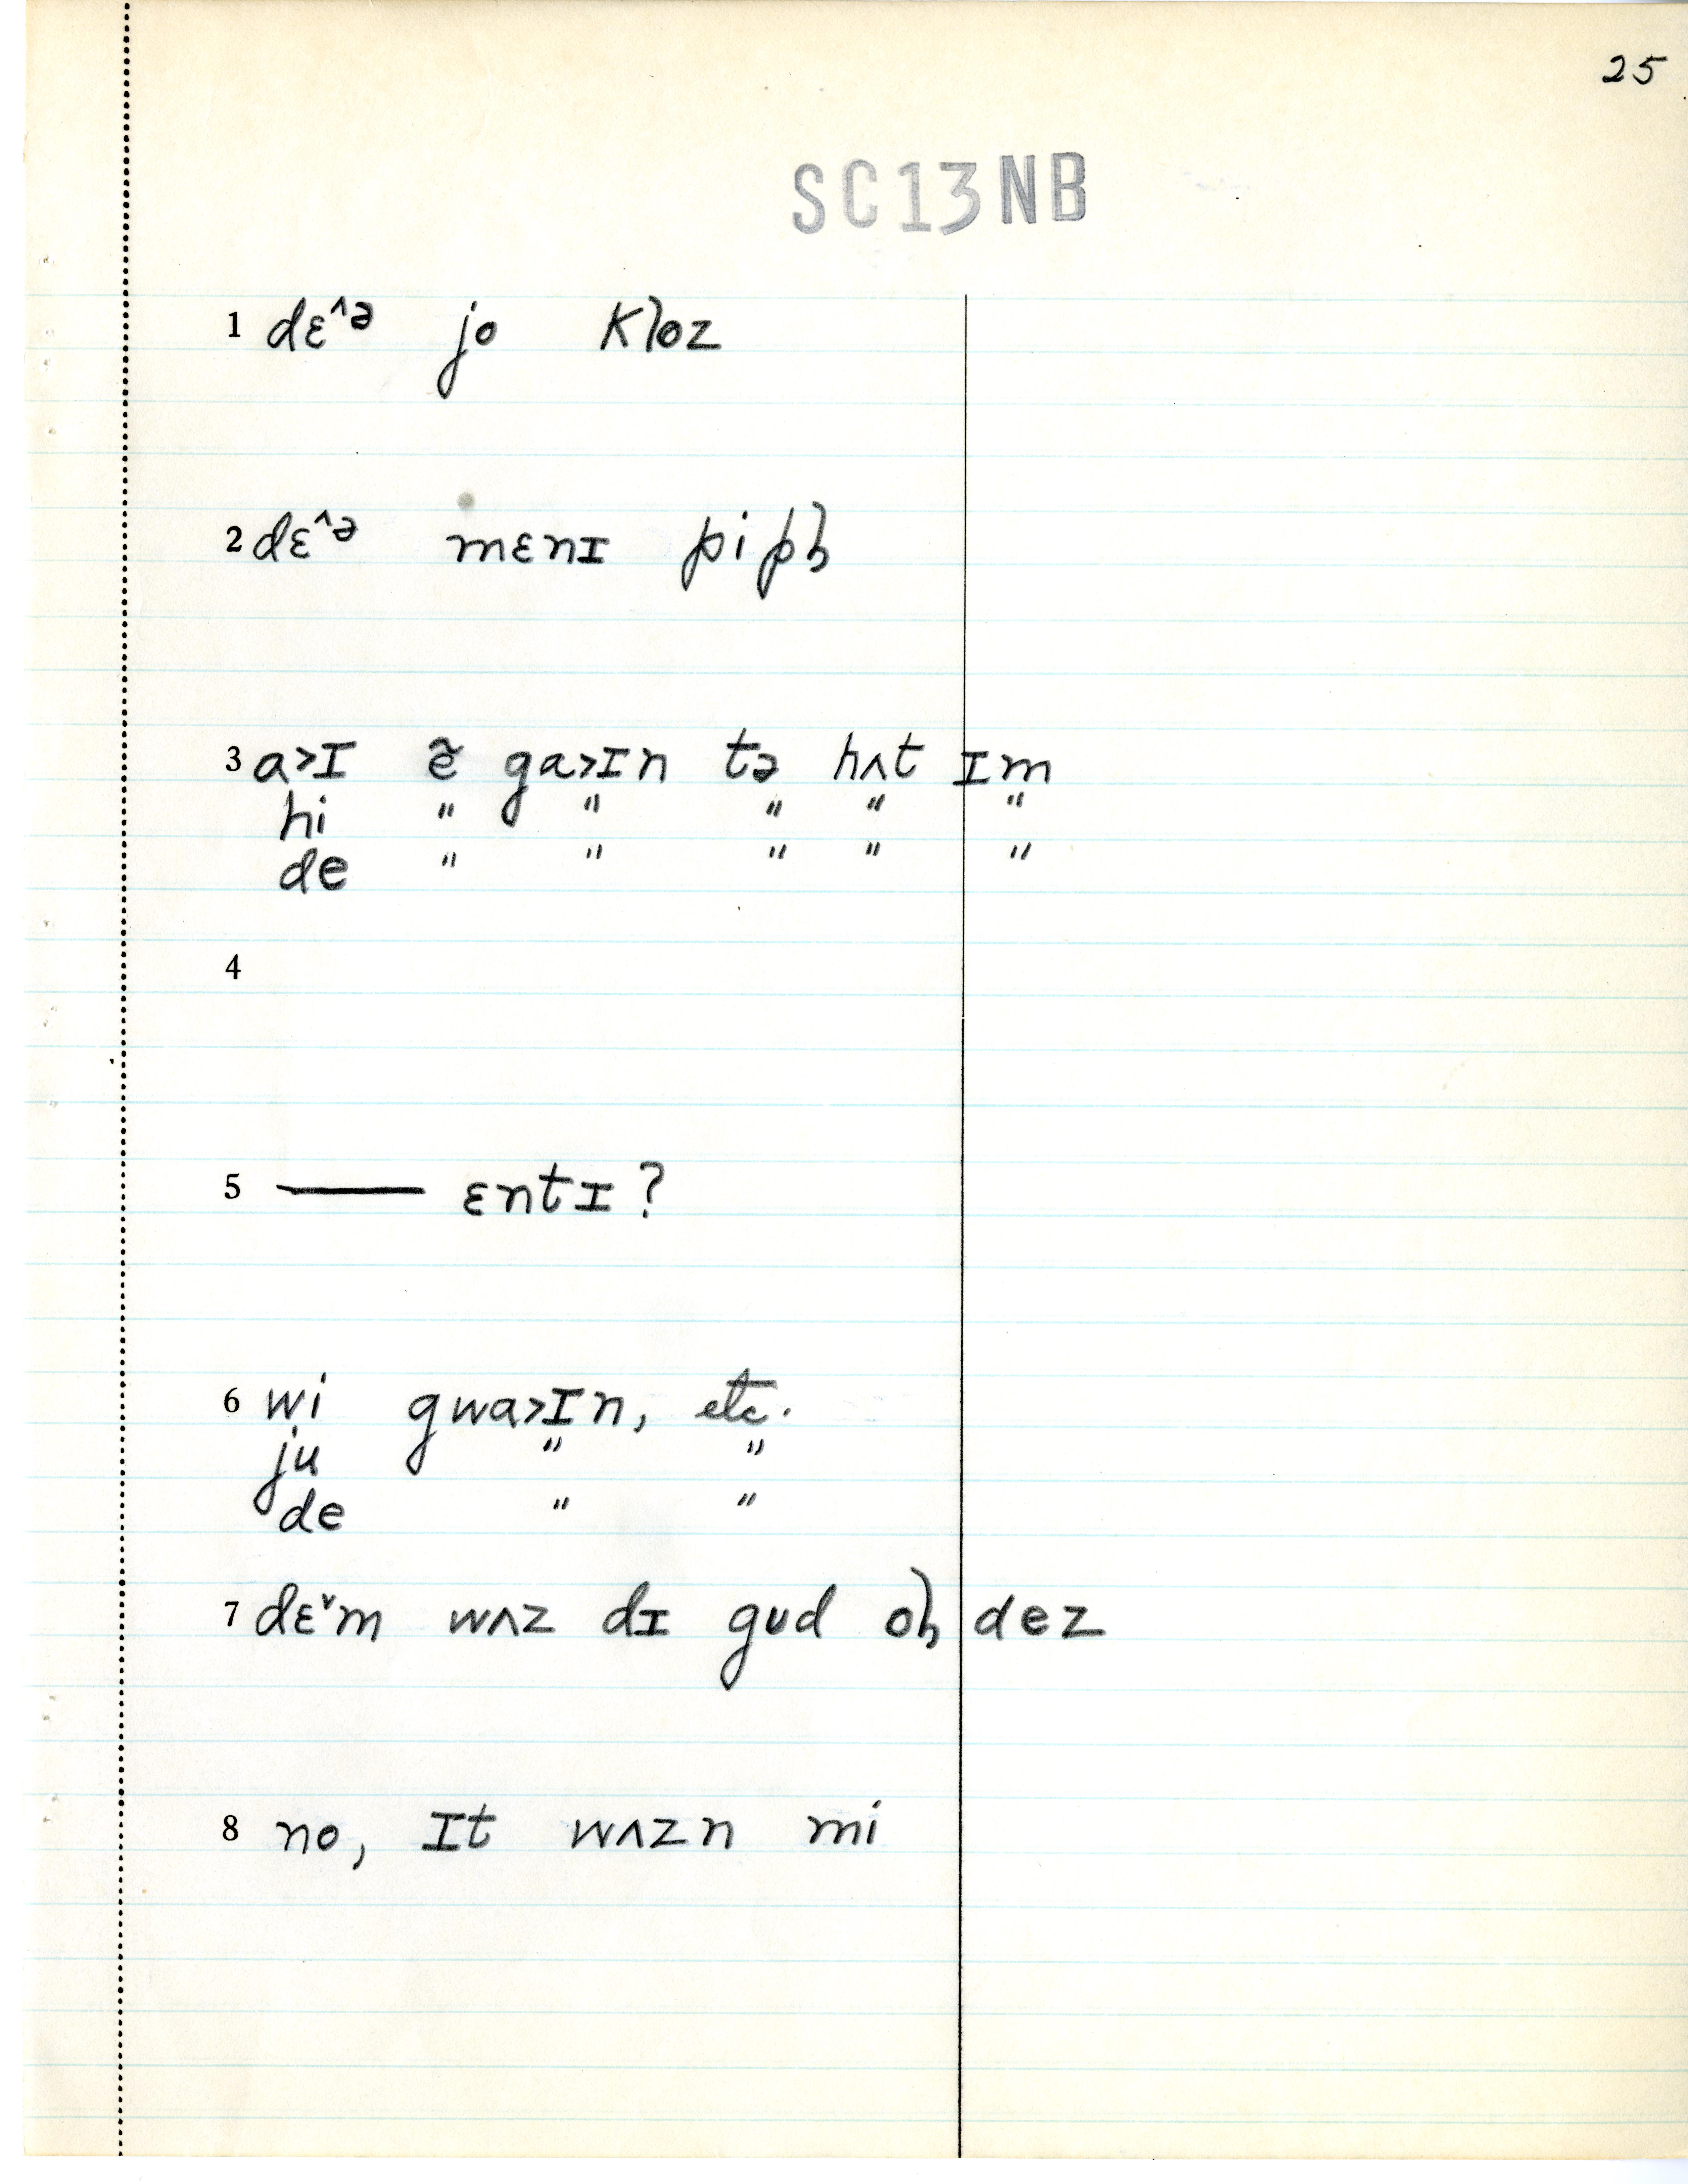 25
SC13NB
1 dɛ^ə jo kl̥oz
2 dɛ^ə mɛnɪ pipl̩
3 a>ɪ ẽ ga>ɪn tə hʌt ɪm
hi " " " " "
de " " " " "
4
5 —— ɛntɪ?
6 wi gwa>ɪn, etc.
ju " "
de " "
7 dɛˇm wʌz dɪ gud ol̩ dez
8 no, ɪt wʌzn mi